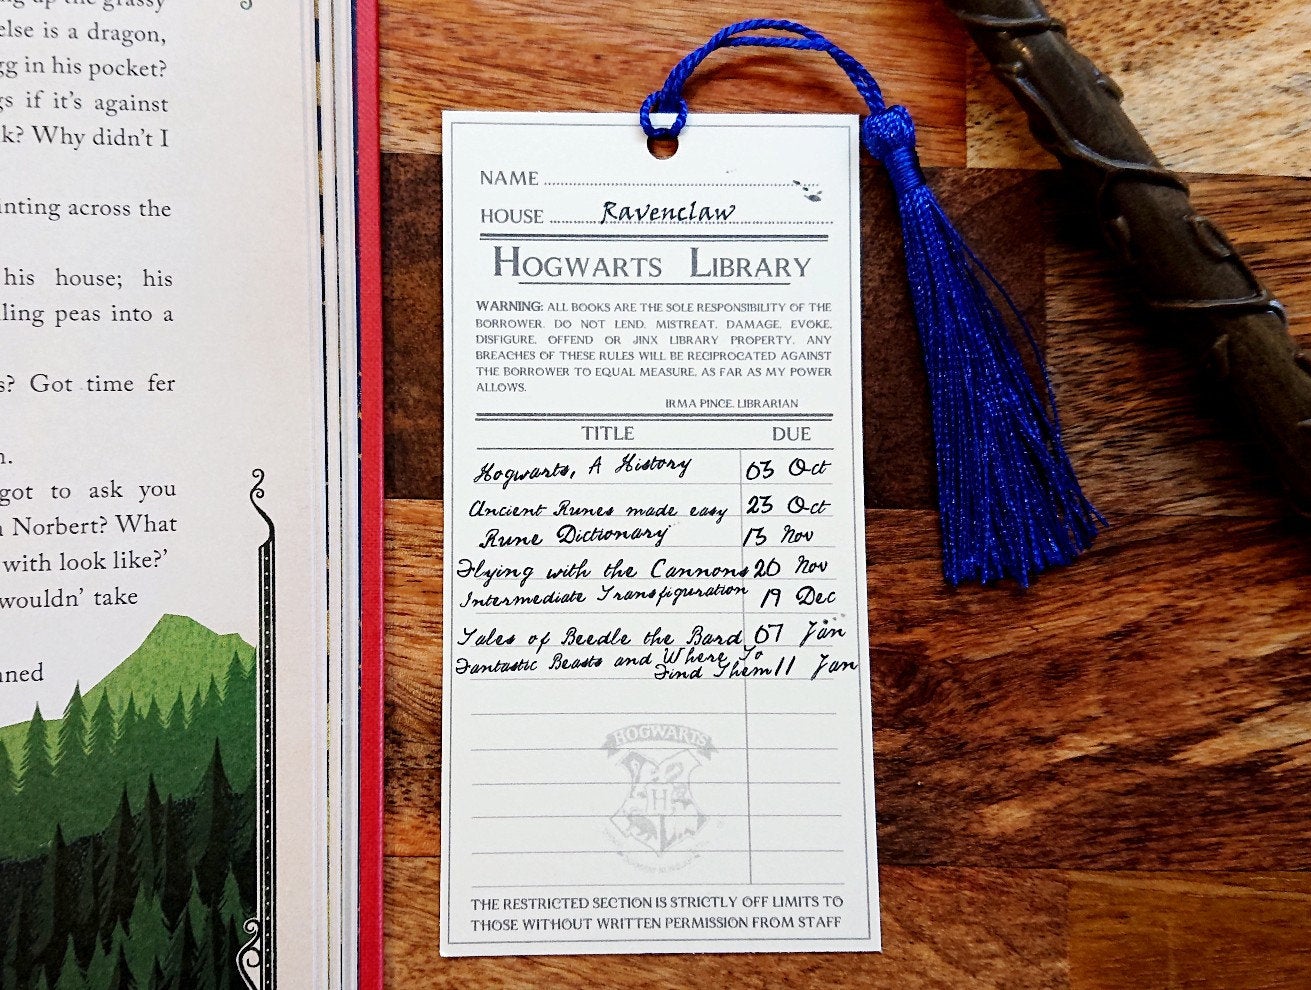 ng up the grassy
else is a dragon,
gg in his pocket?
gs if it's against
k? Why didn't I
inting across the
his house; his
lling peas into a
s? Got time fer
n.
got to ask you
n Norbert? What
with look like?'
wouldn' take
nned
NAME
HOUSE Ravenclaw
HOGWARTS LIBRARY
WARNING: ALL BOOKS ARE THE SOLE RESPONSIBILITY OF THE
BORROWER. DO NOT LEND, MISTREAT, DAMAGE, EVOKE,
DISFIGURE, OFFEND OR JINX LIBRARY PROPERTY. ANY
BREACHES OF THESE RULES WILL BE RECIPROCATED AGAINST
THE BORROWER TO EQUAL MEASURE, AS FAR AS MY POWER
ALLOWS.
IRMA PINCE. LIBRARIAN
TITLE DUE
Hogwarts, A History 03 Oct
Ancient Runes made easy 23 Oct
Rune Dictionary 13 Nov
Flying with the Cannons 20 Nov
Intermediate Transfiguration 19 Dec
Tales of Beedle the Bard 07 Jan
Fantastic Beasts and Where To
Find Them 11 Jan
HOGWARTS
H
THE RESTRICTED SECTION IS STRICTLY OFF LIMITS TO
THOSE WITHOUT WRITTEN PERMISSION FROM STAFF